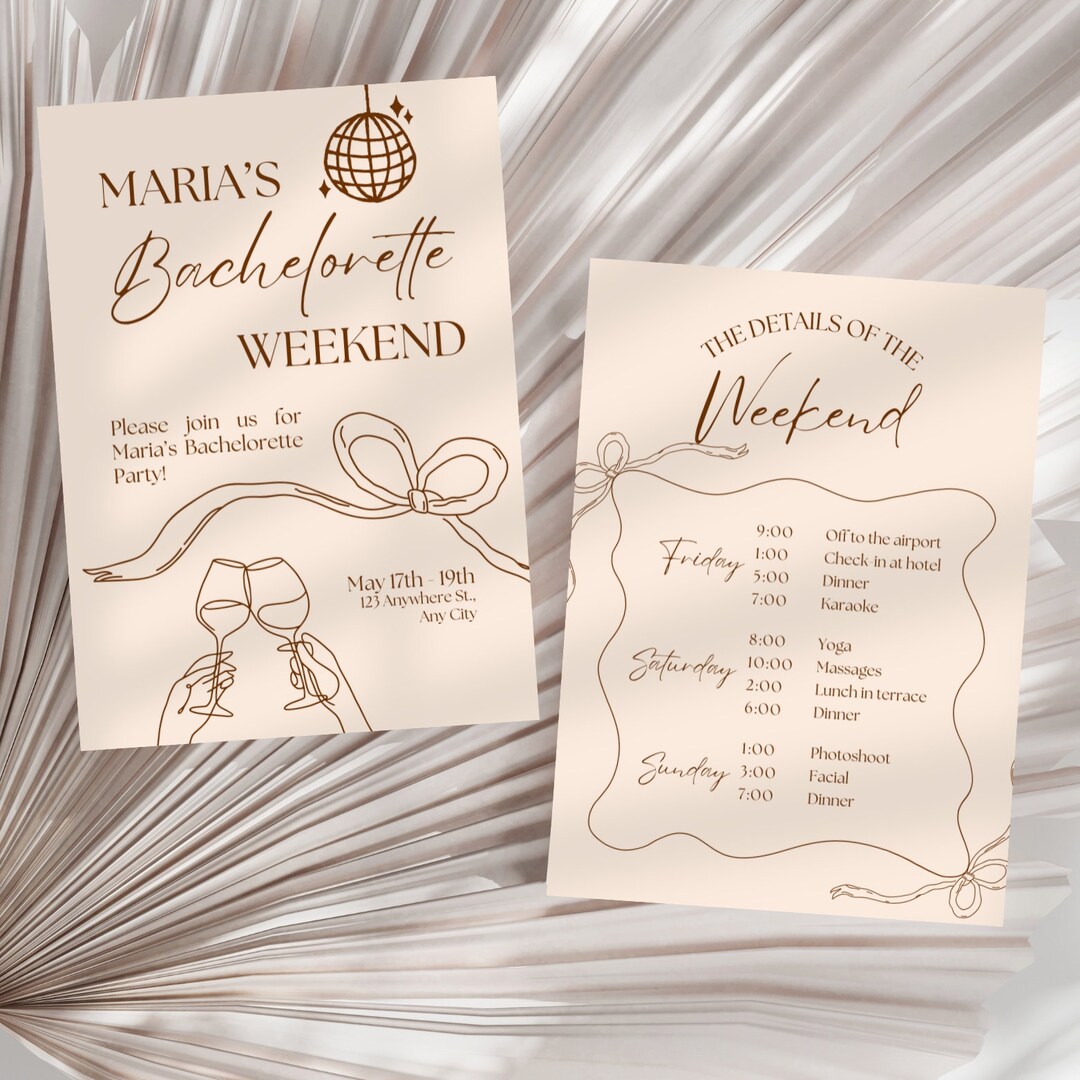 MARIA'S
Bachelorette
WEEKEND
Please join us for
Maria's Bachelorette
Party!
May 17th - 19th
123 Anywhere St.,
Any City
THE DETAILS OF THE
Weekend
Friday
9:00 Off to the airport
1:00 Check-in at hotel
5:00 Dinner
7:00 Karaoke
Saturday
8:00 Yoga
10:00 Massages
2:00 Lunch in terrace
6:00 Dinner
Sunday
1:00 Photoshoot
3:00 Facial
7:00 Dinner